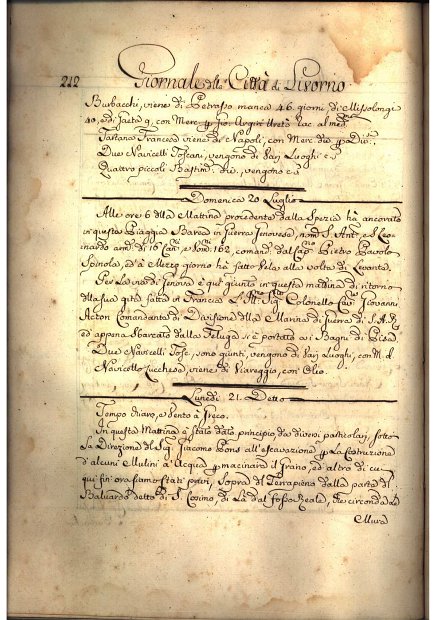 212 Giornale della Città di Livorno
Burbacchi, viene di Petrasso manca 46. giorni, di Missolongi
40, ed
Tartana Francesa viene di Napoli, con Merc. div.
Due Navicelli Toscani, vengono di varj Luoghi e.s
Quattro piccoli Bastim. div. vengono e.s
Domenica 20 Luglio
Alle ore 6 della Mattina procedente dalla Spezia hà ancorato
in questa Piaggia Barca in Guerra Genovese, nom. S. Ant. e Leo-
nardo arm. di 16 Can. e 162, comand. dal Cap. Pietro Pavolo
Spinola, ed à Mezzo giorno hà fatto Vela alla volta di Levante.
Per la via di Genova è qui giunto in questa mattina di ritorno
dalla sua gita fatta in Francia L'Ill. Sig. Colonello Cav. Giovanni
Acton Comandante di Divisione della Marina di Guerra di S.A.R.
ed appena sbarcato dalla Feluga si è portato a i Bagni di Pisa.
Due Navicelli Tosc. sono giunti, vengono da varj Luoghi, con M. d.
Navicello Lucchese, viene di Viareggio, con Olio.
Lunedì 21. Detto
Tempo chiaro, e Vento à Greco.
In questa Mattina è stato dato principio, da diversi particolari, sotto
La Direzione del Sig. Giacomo Bons all'escavazione p La Costruzione
d'alcuni Mulini à Acqua p macinare il Grano, ed altro di cui
qui fin' ora siamo stati privi, Sopra il Terrapieno dalla parte di
Baluardo detto di S. Cosimo, di Là dal fosso Reale, che circonda Le
Mura